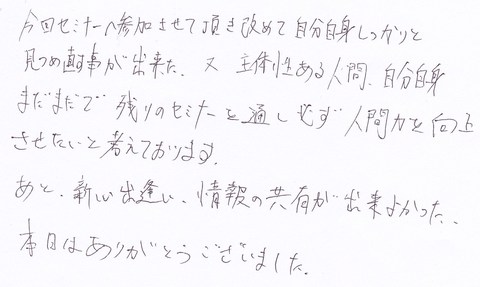 今回セミナーへ参加させて頂き改めて自分自身しっかりと
見つめ直す事が出来た。又 主体性ある人間、自分自身
まだまだで 残りのセミナーを通し必ず人間力を向上
させたいと考えております。
あと、新しい出逢い、情報の共有が出来よかった、
本日はありがとうございました。